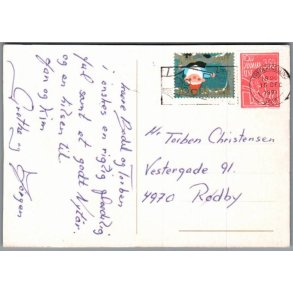 Kære Bodil og Torben
i ønskes en rigtig glædelig
jul samt et godt Nytår.
og en hilsen til
og Kim
Grethe og Jørgen
Hr Torben Christensen
Vestergade 91.
4970 Rødby
DANMARK